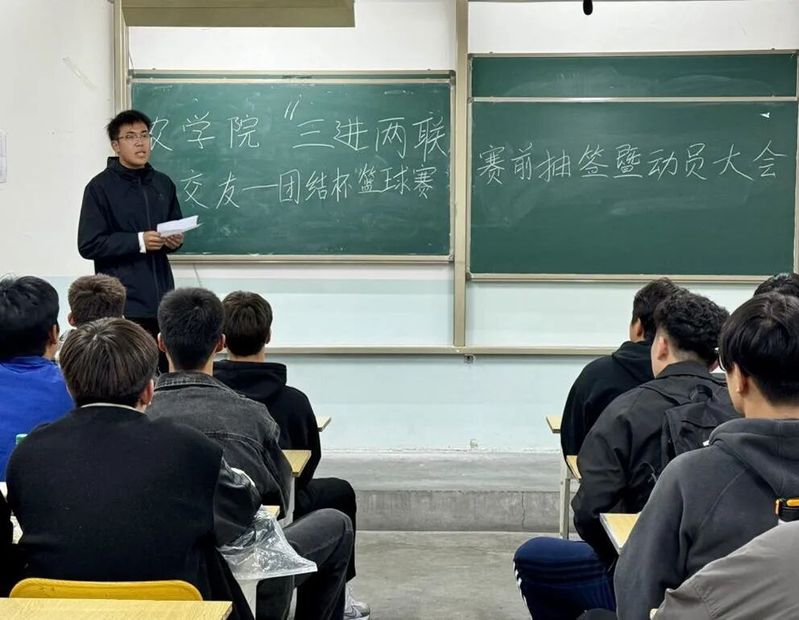 农学院"三进两联
交友—团结杯"篮球赛
赛前抽签暨动员大会